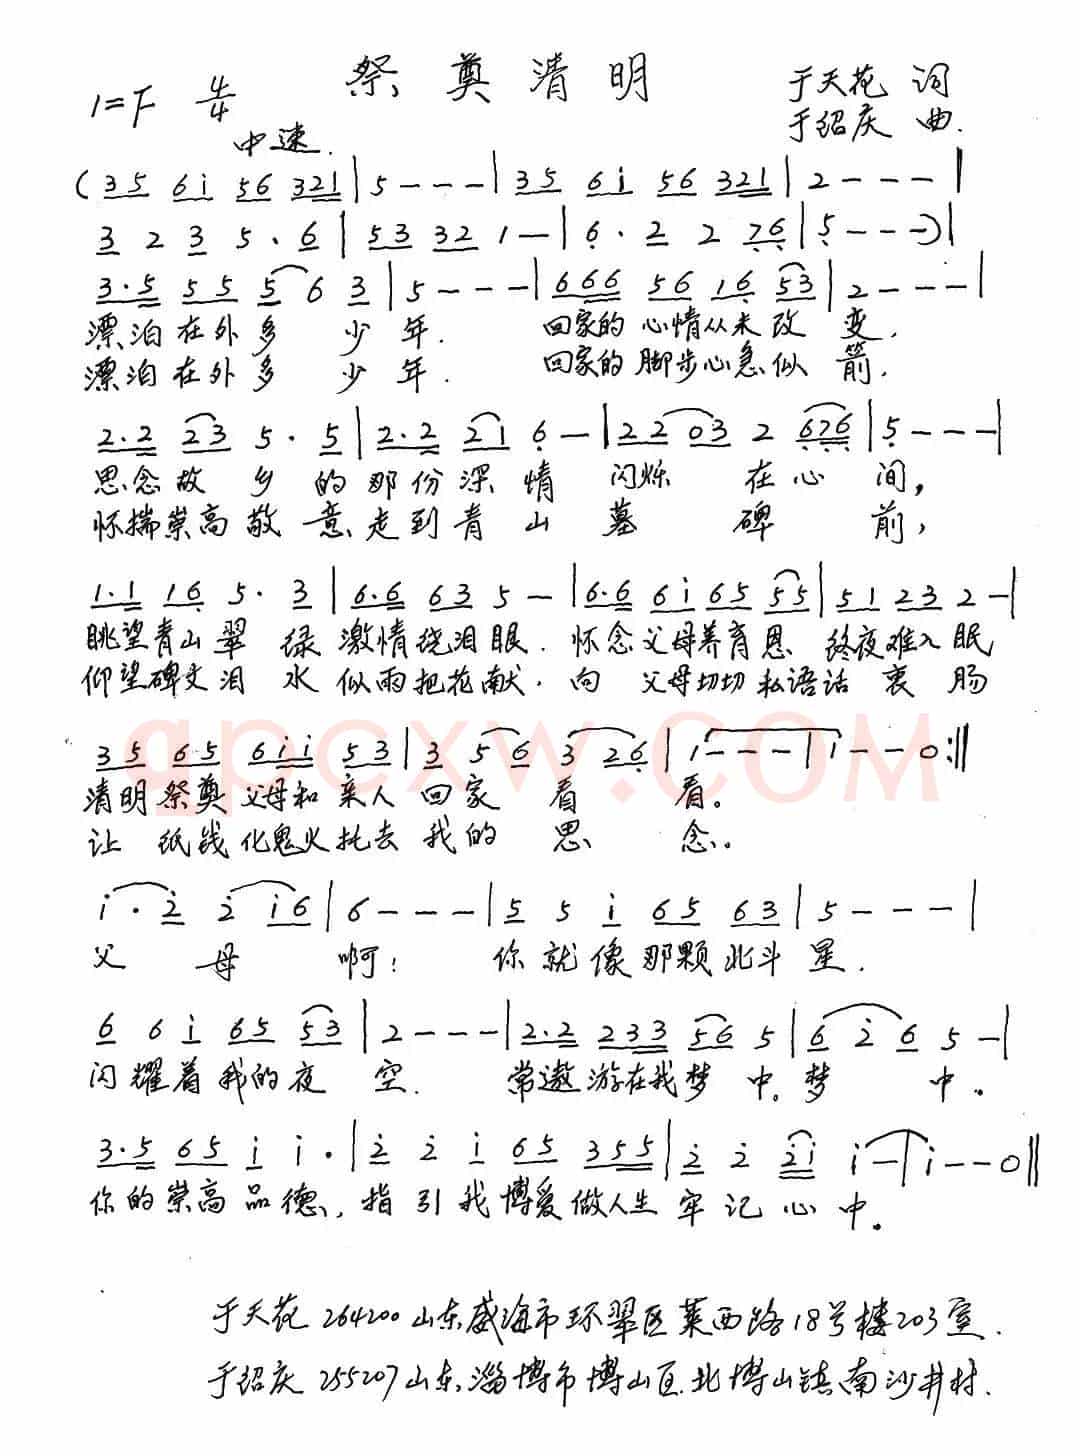 祭奠清明
1=F 4/4
于天花 词
于绍庆 曲.
中速.
(35 6i 56 321|5---|35 6i 56 321|2---‖
3 2 3 5·6|53 32 1-|6·2 2 76|5---)|
3·5 55 5 6 3|5---|666 56 16 53|2---|
漂泊在外多少年. 回家的心情从未改变.
漂泊在外多少年. 回家的脚步心急似箭.
2·2 23 5·5|2·2 21 6-|22 03 2 676|5---|
思念故乡的那份深情闪烁在心间,
怀揣崇高敬意走到青山墓碑前,
1·1 16 5·3|6·6 63 5-|6·6 6i 65 55|51 23 2-|
眺望青山翠绿激情绕泪眼.怀念父母养育恩 终夜难入眠
仰望碑文泪水似雨把花献.向父母切切私语话衷肠
35 65 6ii 53|3 56 3 26|1---|i---0:‖
qpcxw.COM
清明祭奠父母和亲人回家看看。
让纸钱化鬼火托去我的思念。
i·2 2 i6|6---|5 5 i 65 63|5---|
父母啊! 你就像那颗北斗星.
6 6 i 65 53|2---|2·2 233 56 5|6 2 6 5-|
闪耀着我的夜空. 常遨游在我梦中。梦中.
3·5 65 i i·|2 2 i 65 355|2 2 2i i-|i--0‖
你的崇高品德,指引我博爱做人生牢记心中。
于天花 264200山东威海市环翠区莱西路18号楼203室.
于绍庆 255207山东淄博市博山区北博山镇南沙井村.